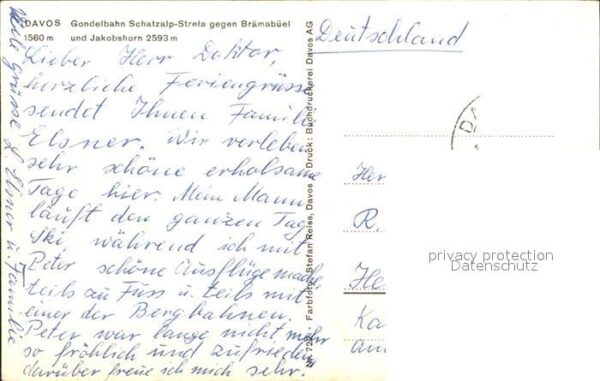 DAVOS Gondelbahn Schatzalp-Strela gegen Brämabüel
1560 m und Jakobshorn 2593 m
Lieber Herr Doktor,
herzliche Feriengrüsse
sendet Ihnen Familie
Elsner. Wir verleben
sehr schöne erholsame
Tage hier. Mein Mann
läuft den ganzen Tag
Ski, während ich mit
Peter schöne Ausflüge mache,
teils zu Fuss u. teils mit
einer der Bergbahnen.
Peter war lange nicht mehr
so fröhlich und zufrieden
darüber freue ich mich sehr.
Viele Grüsse L. Elsner u. Familie
Nr. 722 Farbfoto: Stefan Reiss, Davos Druck: Buchdruckerei Davos AG
Deutschland
DA
Her
R.
He
Ka
am
privacy protection
Datenschutz